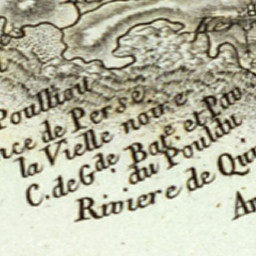 Ker
Poulliou
nce de Perse
la Vielle noire
C. de Gde Bat.e et Pav
du Pouldu
Riviere de Qui
An